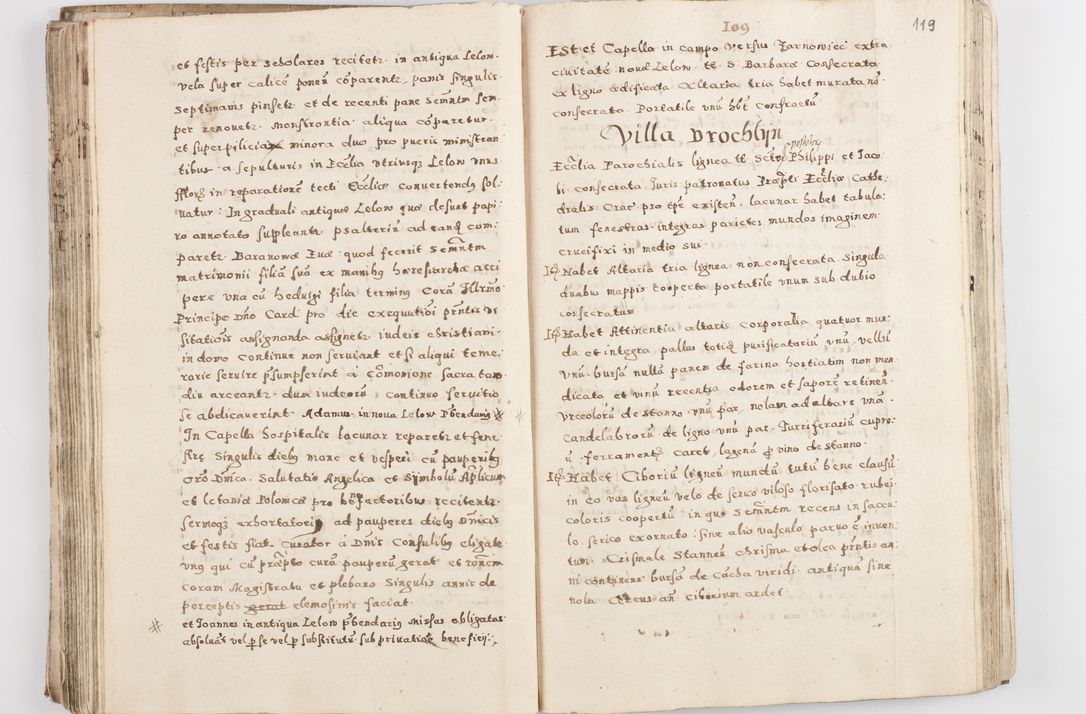 et festis per scholares recitetr in antiqua Lelow.
vela super calicē ponen cōparentr panis singulis
septimanis pinsetr et de recenti pane Semntm sem-
per renovetr. Monstrantia aliqua cōparetur
et superpilicia minora duo pro pueris ministran
tibus a sepulturis in Ecclia utriusq Lelow unus
fflorg in reparationē tecti Eccliæ convertendus sol-
vatur: In graduali antiquæ Lelow quæ desunt papi-
ro annotato suppleantr psalteriū ad eandē com-
paretr. Baranowa Eua quod fecerit Semntm
matrimonii filiā suā ex manibus hæresiarchæ acci
pere una cū Heduigi filia terminus Corā Illrmo
Principe Dno Card pro die exequutiōi pntis Vi
sitationis assignanda assignetr iudeis christiani
in domo continue non serviant et si aliqui teme
rarie servire psumpserint a cōmonione sacra tam
diu arceantr dum iudeorū continuo servitio
se abdicauerint Adamus in nova Lelow Pbendariq #
In Capella hospitalis lacunar reparetr et fene
stre singulis diebq mane et vesperi cū pauperibq
orō Dnica. Salutatio Angelica et Symbolū Aplicum
et letania Polonica pro bnfactoribus recitentr
sermoqz exhortatorig ad pauperes diebq Dnicis
et festis fiat. Curator a Dnis Consulibq eligatr
unq qui cū præpto curā pauperū gerat et ronem
coram Magistratu et plebano Singulis annis de
perceptis gerat elemosinis faciat
# et Joannes in antiqua Lelow pbendariq missas obligatas
absolvāt vel p se vel p substitutū sub privatiōe beneficij.
109
119
Est et Capella in campo versus Jarnowiec extra
civitatē novā Lelow tt. S. Barbaræ Consecrata
ex ligno ædificata Altaria tria habet murata nō
consecrata Portatile unū hbt confractū
Villa Drochlyn
Ecclia Parochialis lignea tt Sctor Apostolorq Philippi et Jaco
bi. consecrata Juris patronatus Præpti Eccliæ Cathe
dralis Crac pro tpe existen. lacunar habet tabula
tum fenestras integras parietes mundos imaginem
crucifixi in medio sui
Itē Habet Altaria tria lignea non consecrata singula
duabus mappis cooperta portatile unum sub dubio
consecratum
Itē Habet Attinentia altaris corporalia quatuor mun
da et integra pallas totiq purificatoriū unū vellū
unū bursā nullā panem de farina hostiatim non men
dicata et vinū recentia odorem et saporē retinen
Vrceolorū de stanno unū par nolam ad altare unā
Candelabrorū de ligno unū par Turriferariū cupre
ū ferramentis caret lagenā p vino de stanno
Itē Habet Ciborium ligneū mundū tutū bene clausū
in eo vas ligneū velo de serico viloso florisato rubei
coloris coopertū in quo Semntm recens in saccu
lo serico exornato sine alio vasculo parvo ē inven
tum Crismale stanneū chrisma et olea pntis an
ni continens bursā de cæda viridi antiquā sine
nola Cereus an ciborium ardet